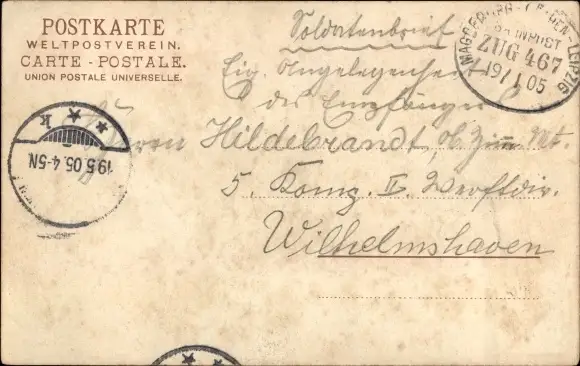 POSTKARTE
WELTPOSTVEREIN.
CARTE - POSTALE.
UNION POSTALE UNIVERSELLE.
Soldatenbrief
Eig. Angelegenheit
des Empfängers
Hildebrandt, Ob. Zimm. Mt.
5. Komp. II. Werftdiv.
Wilhelmshaven
MAGDEBURG LEIPZIG
BAHNPOST
ZUG 467
19/ 05
19.5.05.4-5N
K